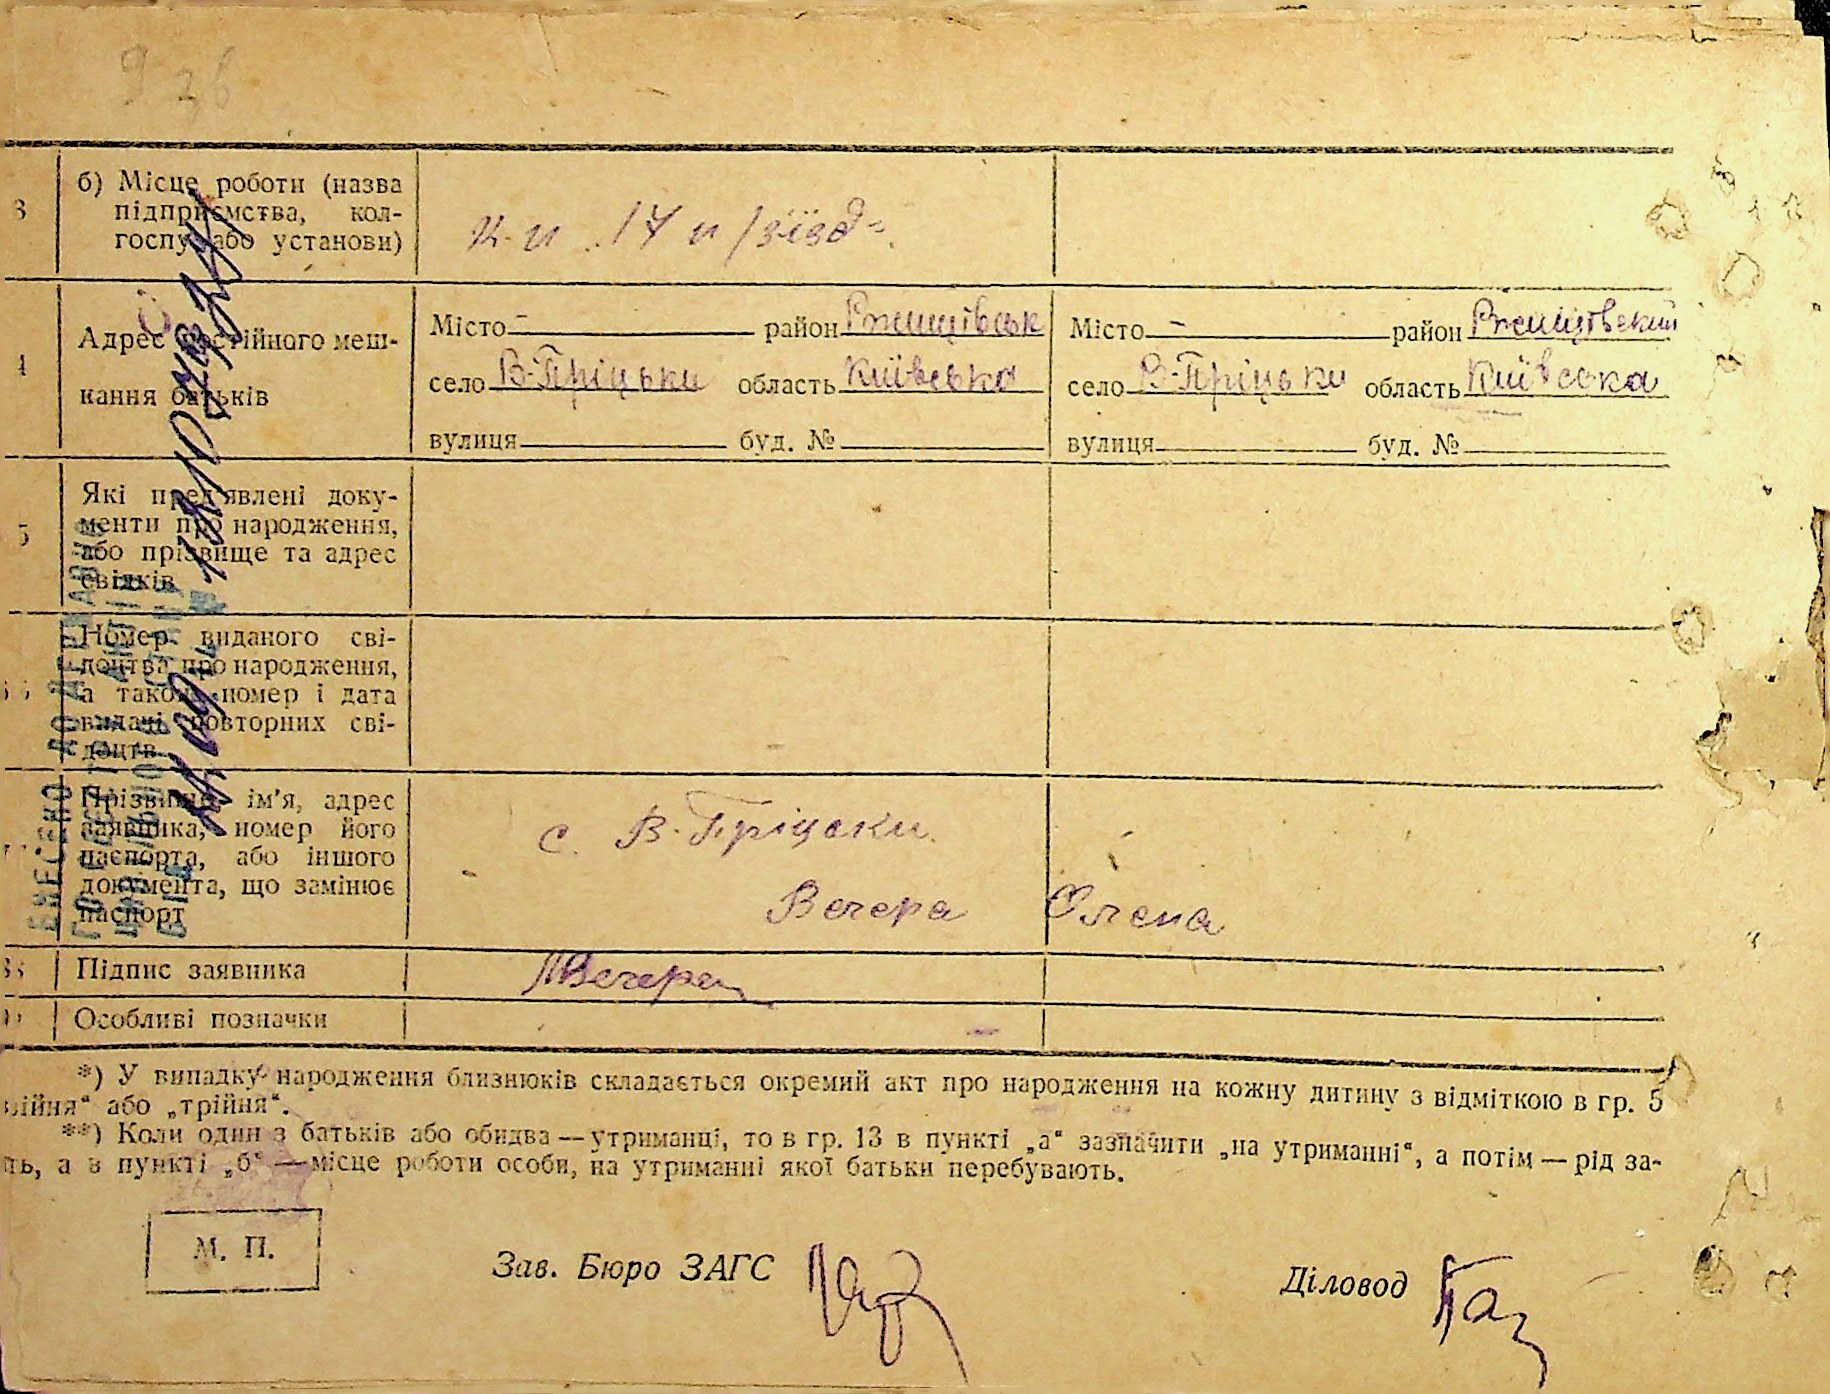 б) Місце роботи (назва
підприємства, кол-
госпу або установи)
14 п/зїзд
Адрес постійного меш-
кання батьків
Місто — район Ржищівськ
село В-Пріцьки область Київська
вулиця буд. №
Місто — район Ржищівський
село В-Пріцьки область Київська
вулиця буд. №
5
Які пред'явлені доку-
менти про народження,
або прізвище та адрес
свідків
Номер виданого сві-
доцтва про народження,
а також номер і дата
видачі повторних сві-
доцтв
Прізвище, ім'я, адрес
заявника, номер його
паспорта, або іншого
документа, що замінює
паспорт
с. В-Пріцьки.
Вечера Олена
Підпис заявника
Вечера
Особливі позначки
ВНЕСЕНО ДО ДЕРЖАВНО
ГО РЕЄСТРУ АКТІВ
ЦИВІЛЬНОГО СТАНУ
*) У випадку народження близнюків складається окремий акт про народження на кожну дитину з відміткою в гр. 5
війня“ або „трійня“.
**) Коли один з батьків або обидва — утриманці, то в гр. 13 в пункті „а“ зазначити „на утриманні“, а потім — рід за-
ть, а в пункті „б“ — місце роботи особи, на утриманні якої батьки перебувають.
М. П.
Зав. Бюро ЗАГС
Діловод